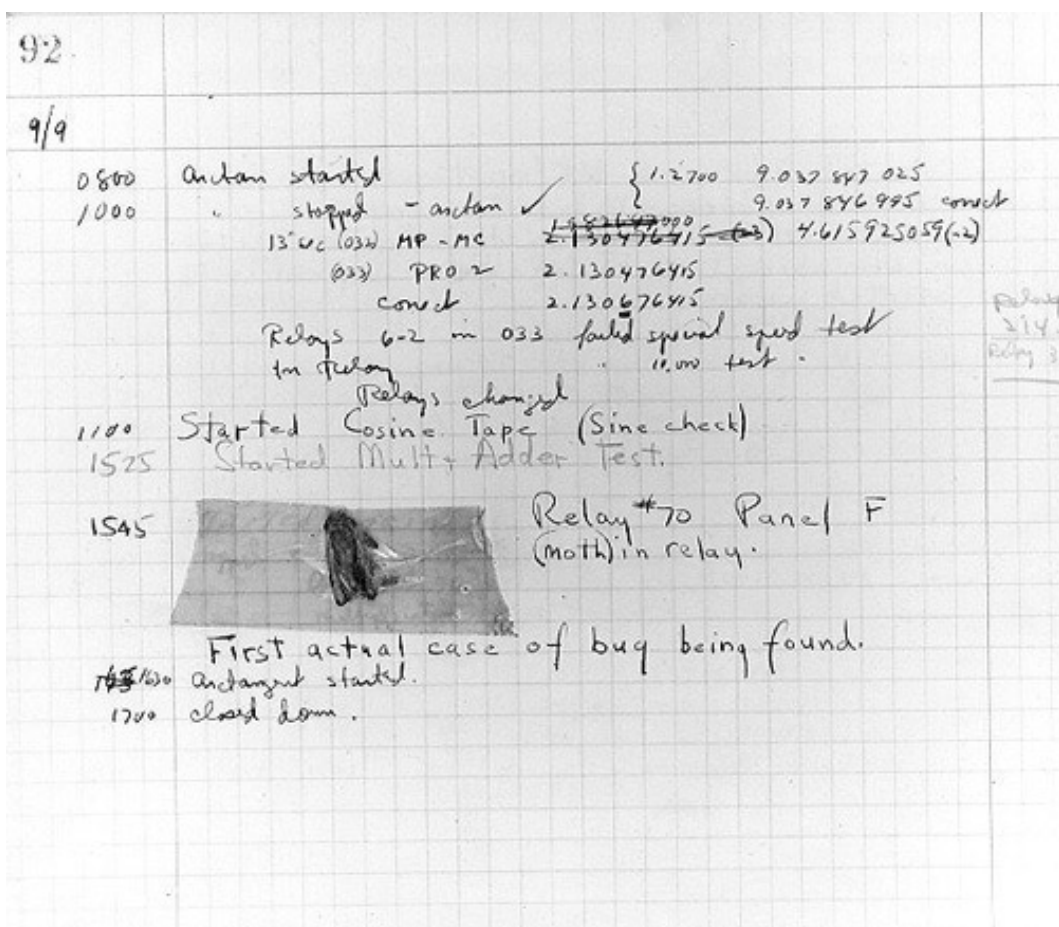 92
9/9
0800 arctan started { 1.2700 9.037 847 025
1000 " stopped - arctan ✓ 9.037 846 995 correct
13"uc (032) MP - MC 2.130476415 (-3) 4.615925059(-2)
(033) PRO 2 2.130476415
correct 2.130676415
Relays 6-2 in 033 failed special speed test
in Relay " 10.000 test .
Relays changed
1100 Started Cosine Tape (Sine check)
1525 Started Mult + Adder Test.
1545 Relay #70 Panel F
(moth) in relay.
First actual case of bug being found.
1630 arctangent started.
1700 closed down.
Relay
Relay 3